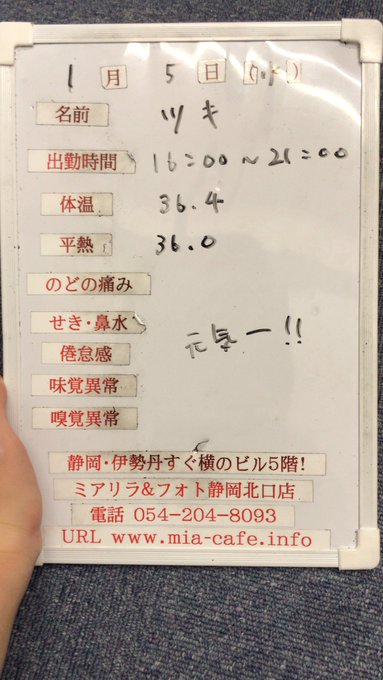 1月 5日 (水)
名前 ツキ
出勤時間 16:00～21:00
体温 36.4
平熱 36.0
のどの痛み
せき・鼻水
倦怠感 元気ー!!
味覚異常
嗅覚異常
静岡・伊勢丹すぐ横のビル5階!
ミアリラ&フォト静岡北口店
電話 054-204-8093
URL www.mia-cafe.info